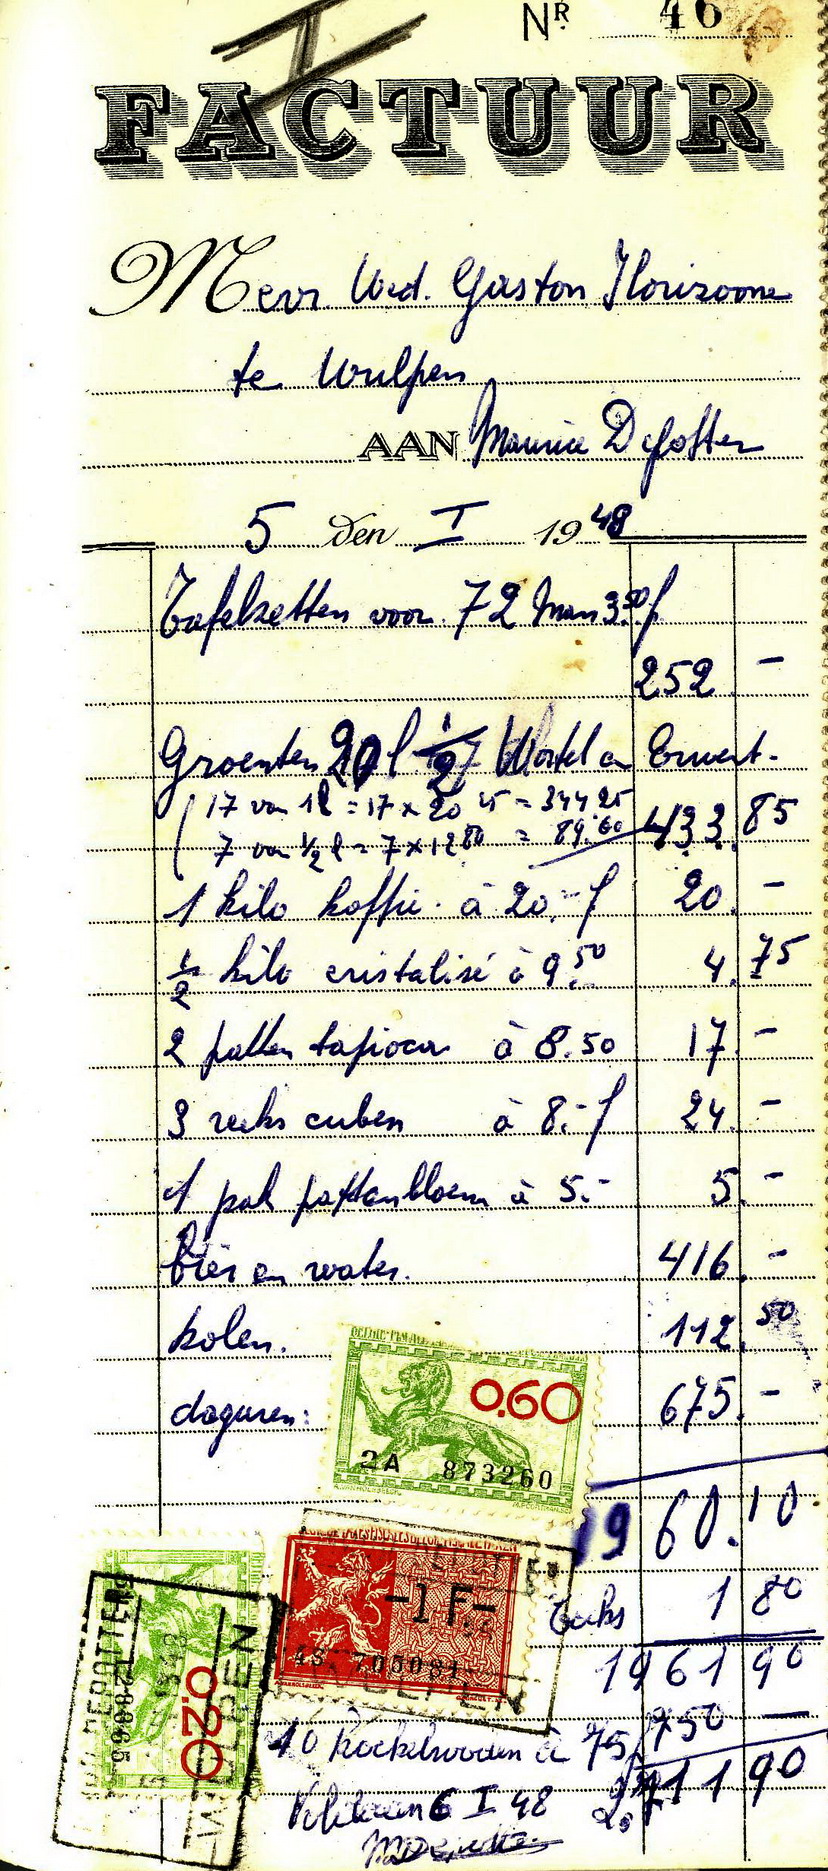 Nʀ 46
FACTUUR
Mevr. Wed. Gaston Florizoone
te Wulpen
AAN Maurice Depotter
5 den I 1948
Tafelzetten voor 72 Man 3.50 f
252 -
Groenten 20 l 1/2 7 Wortel en Erwt.
17 van 1 l = 17 x 20 25 = 344 25
7 van ½ l = 7 x 12 80 = 89.60 433.85
1 kilo koffie à 20.- f 20.-
½ kilo cristalisé à 9.50 4.75
2 pakken tapioca à 8.50 17.-
3 reeks cuben à 8.- f 24.-
1 pak pattenbloem à 5.- 5.-
bier en water. 416.-
kolen. 112.50
daguren: 675.-
0.60
2A 873260
1960.10
-1 F-
Taks 1 80
1961 90
0.20
DEPOTTER
WULPEN
10 kockelvooden à 75 750 -
2711 90
Voldaan 6 I 48
MDepotter